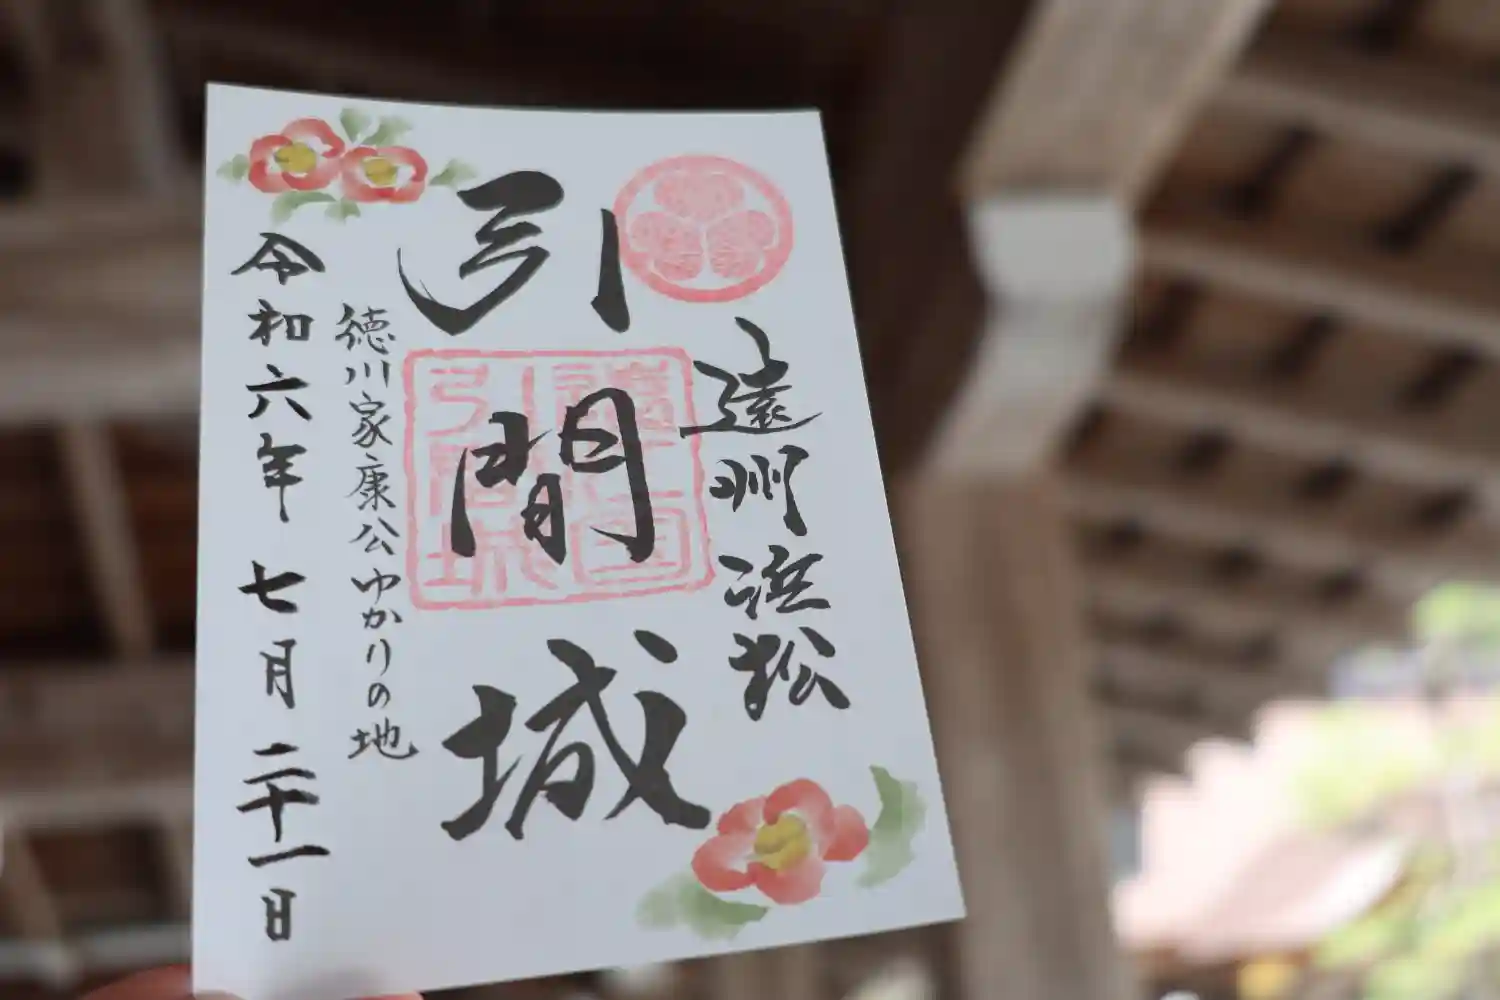 遠州浜松
引間城
徳川家康公ゆかりの地
令和六年七月二十一日